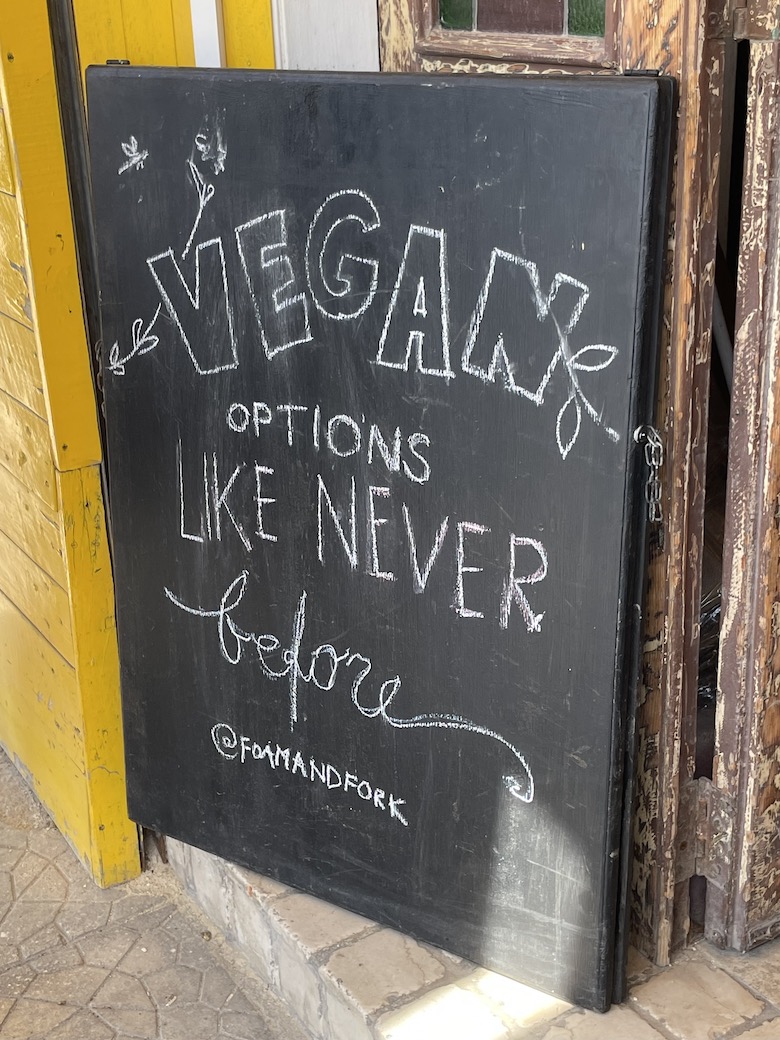 VEGAN
OPTIONS
LIKE NEVER
before
@FOAMANDFORK